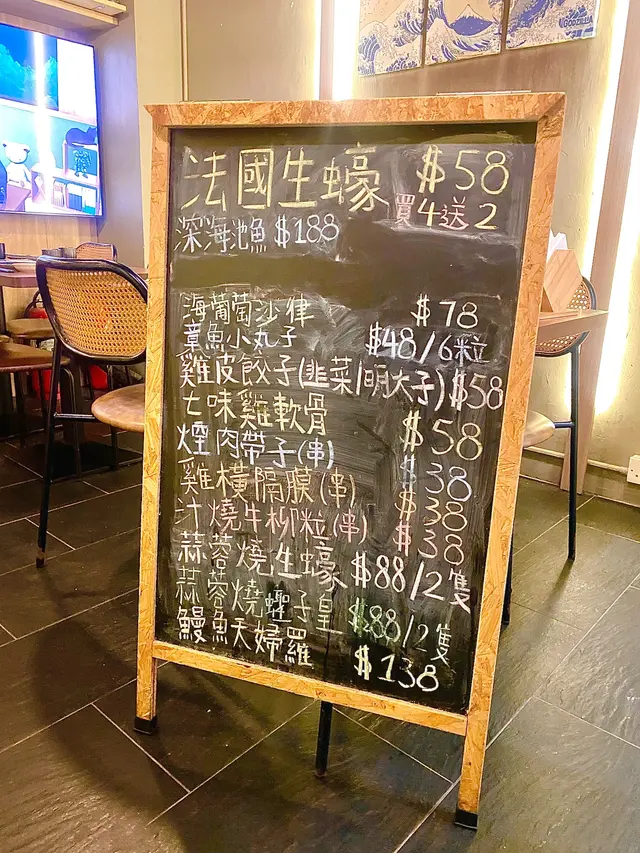 法國生蠔 $58
買4送2
深海池魚 $188
海葡萄沙律 $78
章魚小丸子 $48/6粒
雞皮餃子(韭菜/明太子) $58
七味雞軟骨 $58
煙肉帶子(串) $38
雞橫隔膜(串) $38
汁燒牛柳粒(串) $38
蒜蓉燒生蠔 $88/2隻
蒜蓉燒蟶子皇 $88/2隻
鰻魚天婦羅 $138
GODZILLA